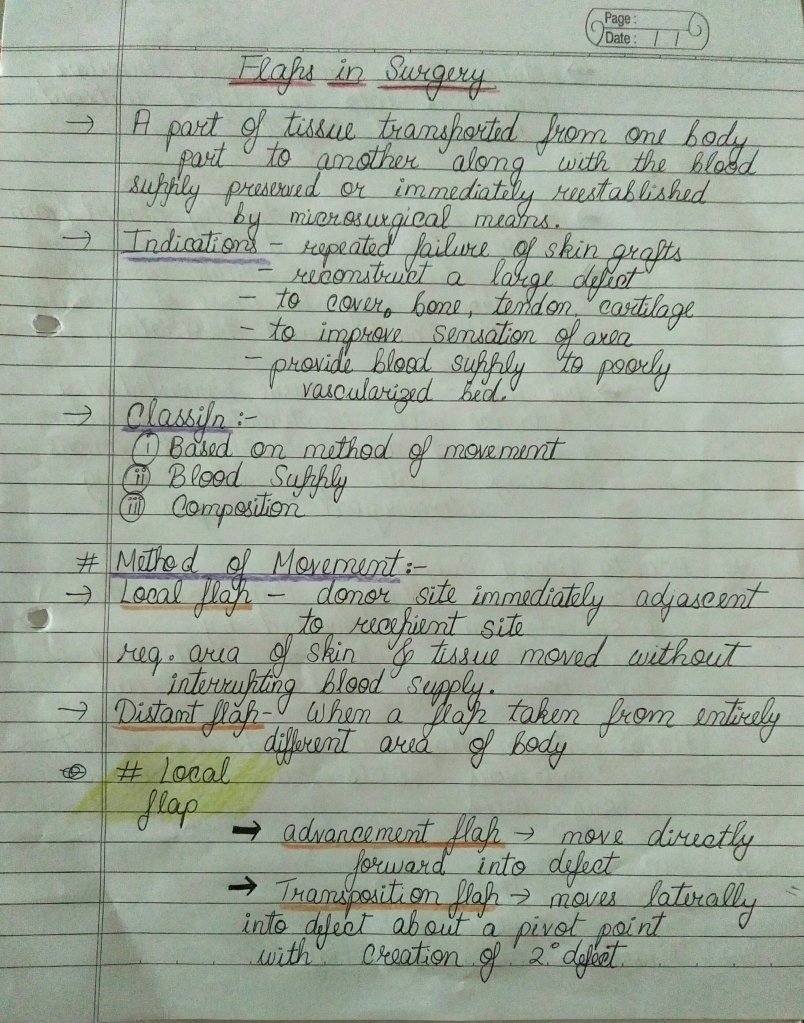 Page:
Date: / /
Flaps in Surgery
→ A part of tissue transported from one body
part to another along with the blood
supply preserved or immediately reestablished
by microsurgical means.
→ Indications - repeated failure of skin grafts
- reconstruct a large defect
- to cover bone, tendon, cartilage
- to improve sensation of area
- provide blood supply to poorly
vascularized bed.
→ Classifn :-
(i) Based on method of movement
(ii) Blood Supply
(iii) Composition
# Method of Movement :-
→ Local flap - donor site immediately adjascent
to recepient site
req. area of skin & tissue moved without
interrupting blood supply.
→ Distant flap - When a flap taken from entirely
different area of body
# Local
flap
→ advancement flap → move directly
forward into defect
→ Transposition flap → moves laterally
into defect about a pivot point
with creation of 2° defect